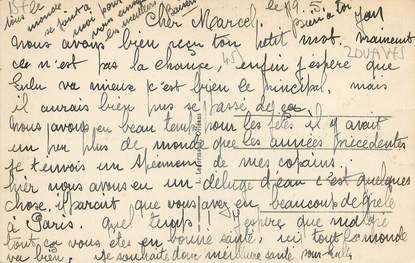 le 19.5.
Cher Marcel.
Nous avons bien reçu ton petit mot. vraiment
ce n'est pas la chance, enfin j'espère que
Lulu va mieux c'est bien le principal. mais
il aurais bien pus se passé de ça
Nous avons eu beau temps pour les fêtes il y avait
un peu plus de monde que les années précedentes
je t'envois un spécimens de mes copains.
hier nous avons eu un déluge d'eau c'est quelques
chose, il parait que vous avez eu beaucoup de grêle
à Paris. quel temps, j'espère que malgré
tout ça vous êtes en bonne santé, ici tout le monde
va bien, je souhaite donc meilleure santé pour Lulu
tous le
monde.
ZOUAVES